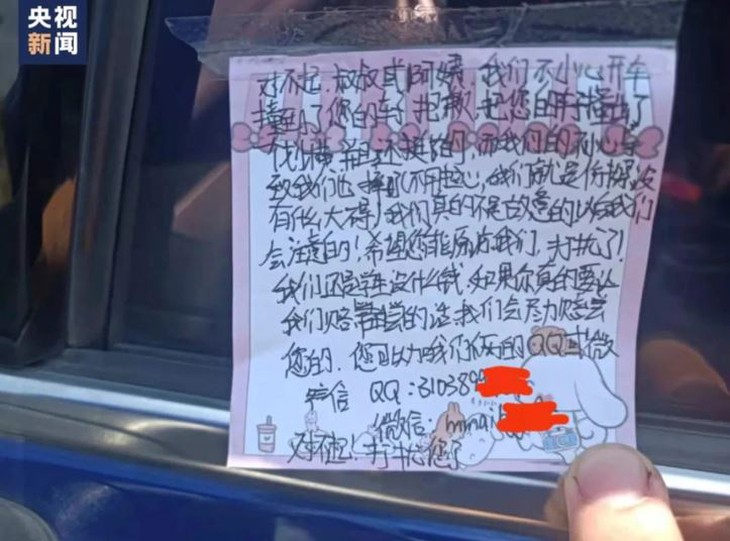 央视
新闻
对不起,叔叔或阿姨,我们不小心开车
撞到了您的车子,抱歉,把您的车撞出了
划横 还挺 的,而我们的不小心导
致我们也摔了不用担心,我们就是伤 没
有什么大 我们真的不是故意的以后我们
会注意的!希望您能原 我们,打扰了!
我们还是学生没什么钱,如果你真的要让
我们赔 的话,我们会尽力赔尝
您的,您可以加我们 的QQ或微
信 QQ:310389
微信:
对不起!打扰您了